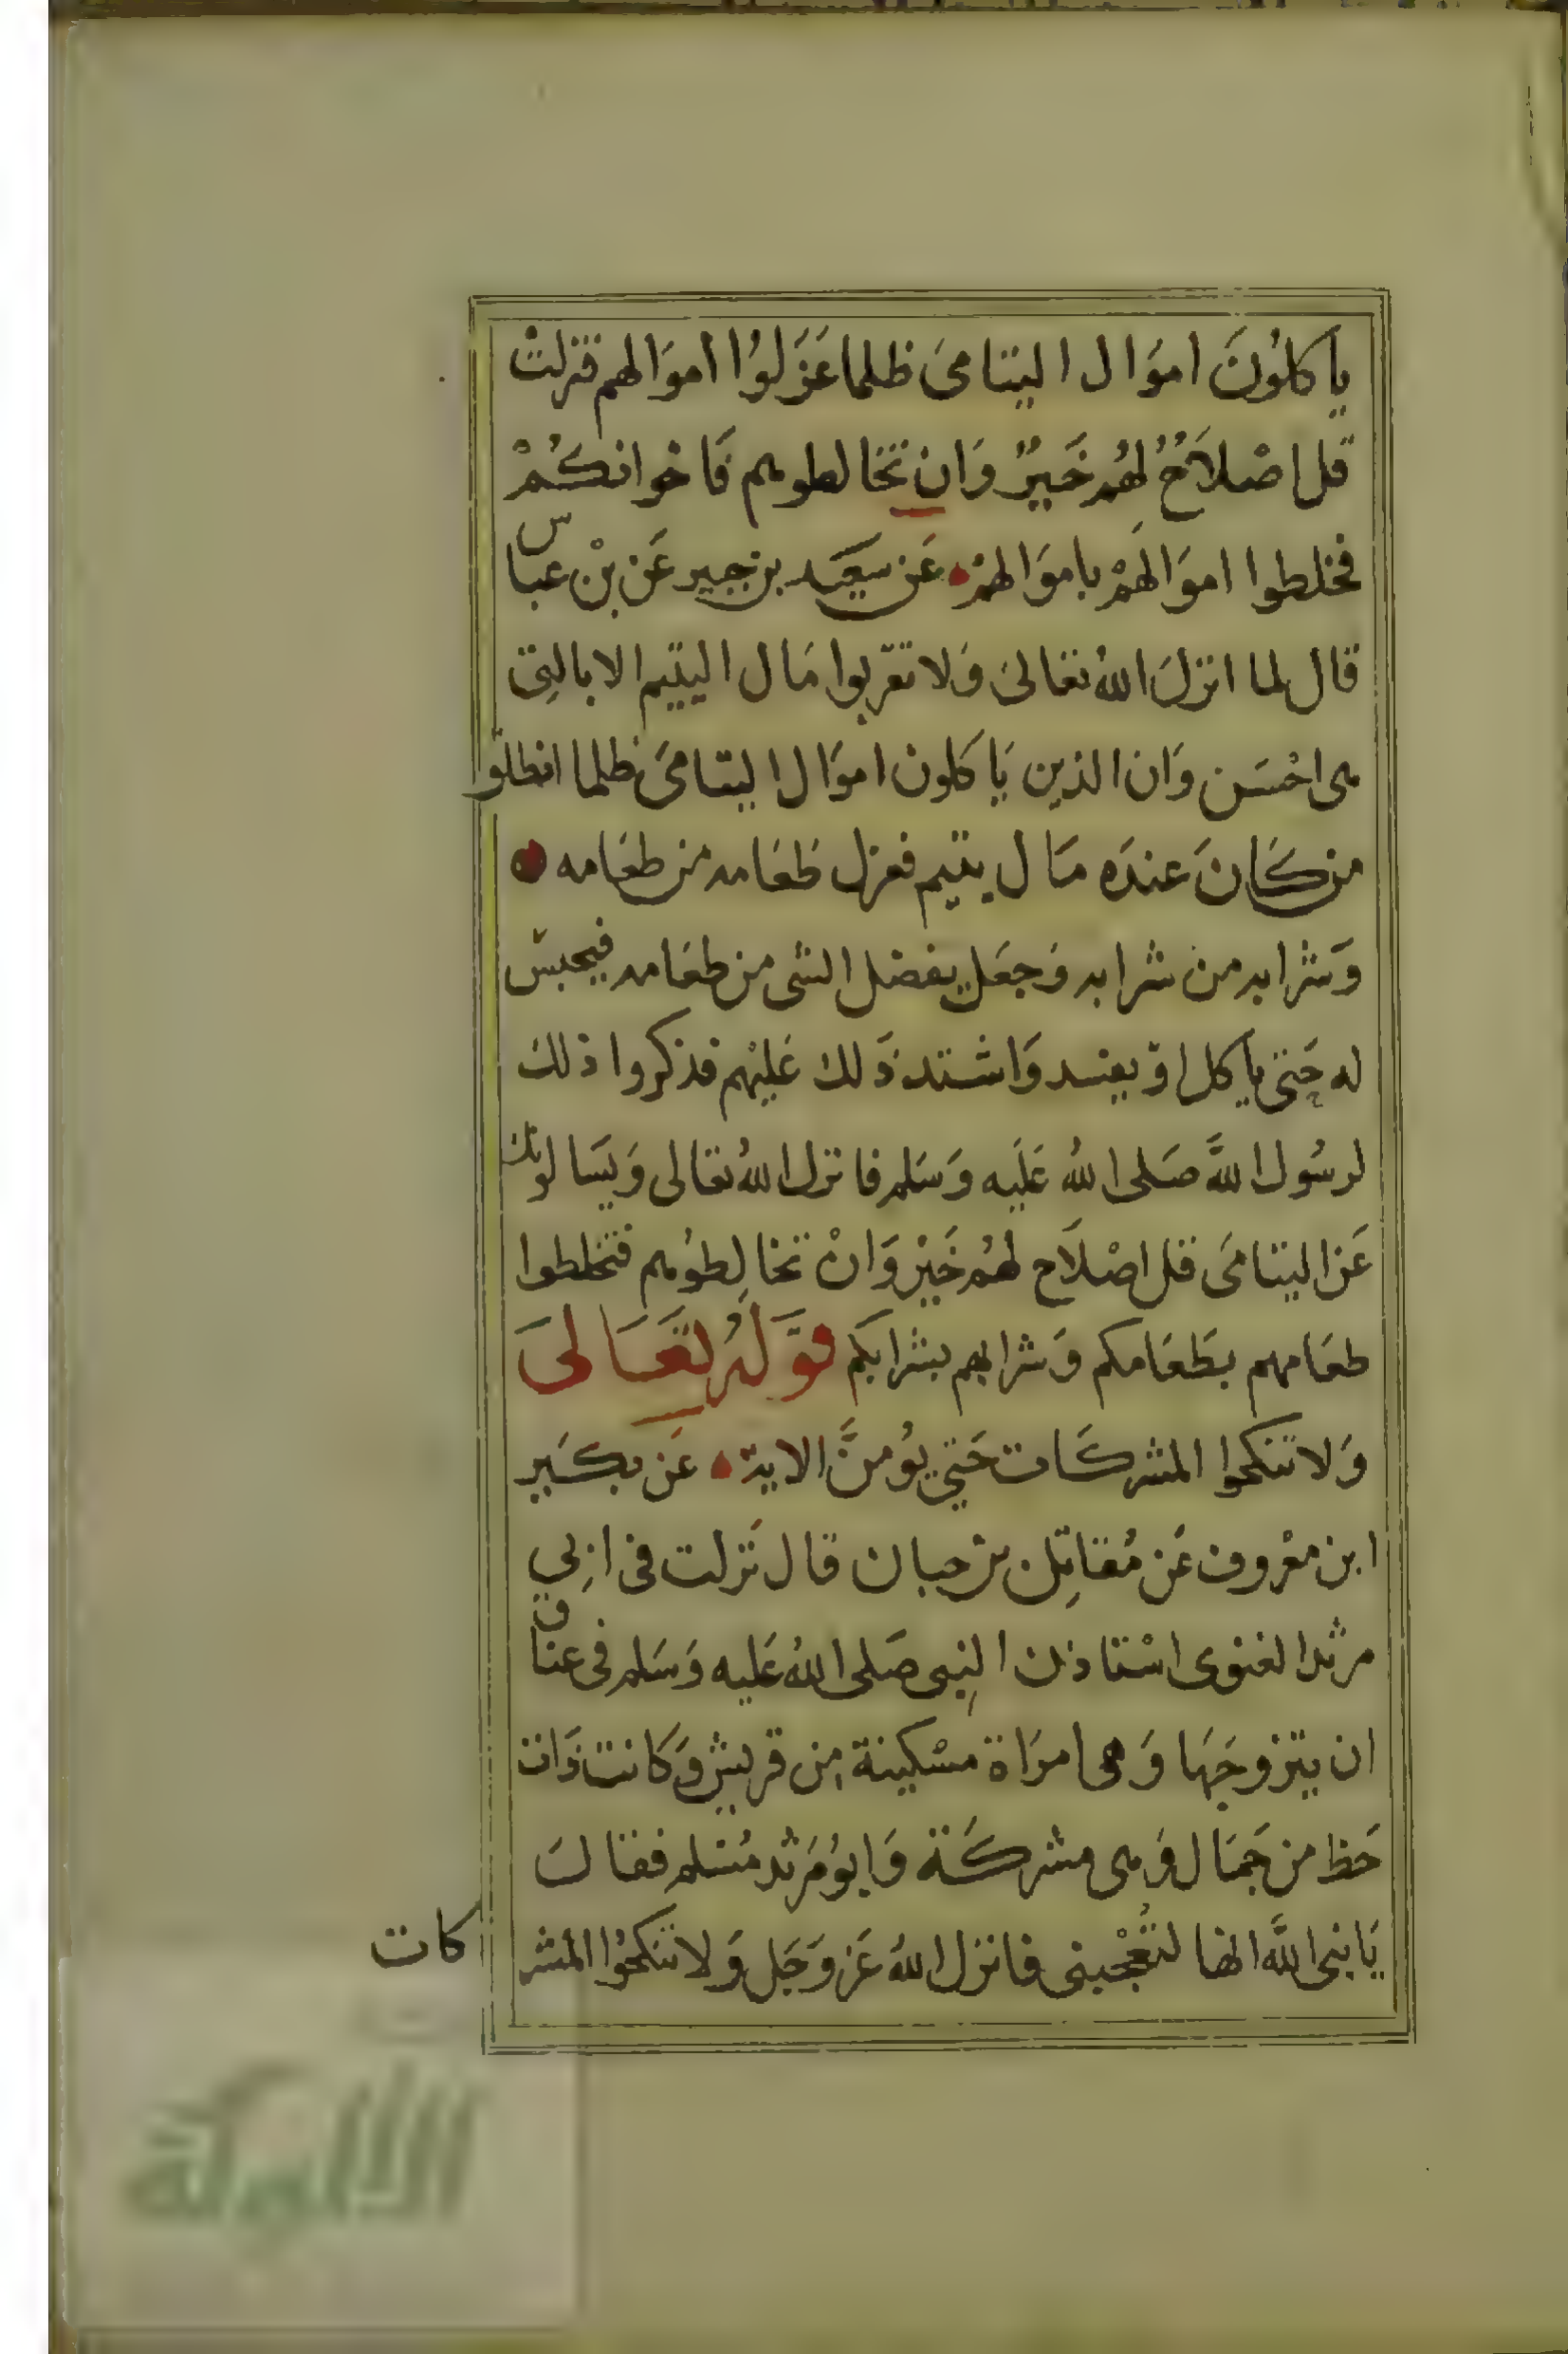 ياكلُونَ اموَال اليتامىَ ظلما عَزَلوُا اموَالهم فنزلتْ
قل اصْلاَحُ لهُم خَيرٌ وَان تخالطوهم فَاخوانكُمْ
فخلطوا اموَالهَمْ باموَالهمْ عَن سَعيَد بن جبير عَن بْن عباس
قال لما انزلَ اللهُ تعَالىَ وَلا تقرّبوا مَال اليتيم الا بالتِى
هى احْسَن وَان الذين يَاكلون اموَال اليتامىَ ظلما انطلقَ
من كَانَ عندَه مَال يتيم فعزل طَعَامه من طعَامه
وَشرابه من شرابه وَجعَل يفضل الشى من طعَامه فيحبسَ
له حَتى ياكل اوَ يفسد وَاشتد ذَلك عَليْهم فذكروا ذلك
لرسُول اللهَّ صَلى اللهُ عَلَيه وَسَلم فانزل اللهُ تعَالى وَيسَالونك
عَن اليتامَى قل اصْلَاح لهُم خَيْر وَانْ تخالِطوُهم فتخلطوا
طعَامهم بطَعَامكم وَشرابهم بشرابكَم قوَلهُ تعَالىَ
وَلا تَنكحوا المشركَات حَتي يوُمنَّ الاية عَن بكَير
ابن معْروف عَن مُقاتِل بن حبان قال نَزلت فى ابِي
مرثد الغنوى اسْتاذن النِبى صَلى اللهُ عَليه وَسَلم فى عناق
ان يتزوجَهَا وَهى امرَاة مسْكينة مِن قريش وَكانت ذَات
حَظ من جَمَال وَهى مشركَة وَابوُ مَرثد مُسْلم فقَالَ
يَا نبى اللهَّ انها لتُعْجبنى فانزل اللهُ عَز وَجَل وَلا تنكحُوا المشر
كات
الألوكة